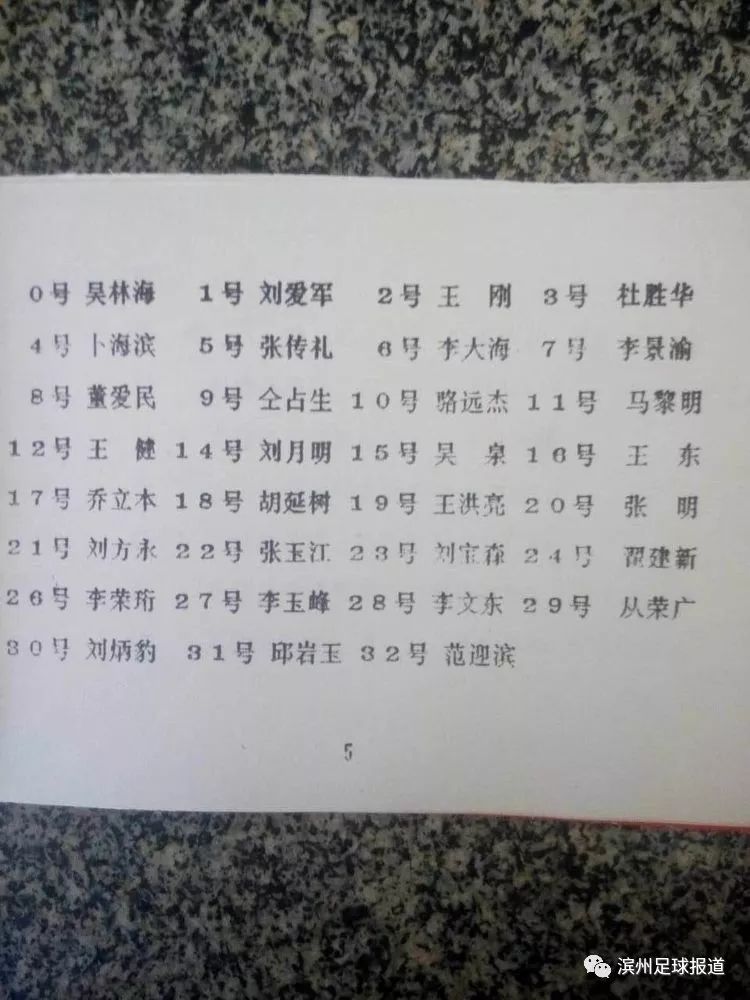 0号 吴林海 1号 刘爱军 2号 王 刚 3号 杜胜华
4号 卜海滨 5号 张传礼 6号 李大海 7号 李景渝
8号 董爱民 9号 仝占生 10号 骆远杰 11号 马黎明
12号 王 健 14号 刘月明 15号 吴 泉 16号 王 东
17号 乔立本 18号 胡延树 19号 王洪亮 20号 张 明
21号 刘方永 22号 张玉江 23号 刘宝森 24号 翟建新
26号 李荣珩 27号 李玉峰 28号 李文东 29号 从荣广
30号 刘炳豹 31号 邱岩玉 32号 范迎滨
5
滨州足球报道